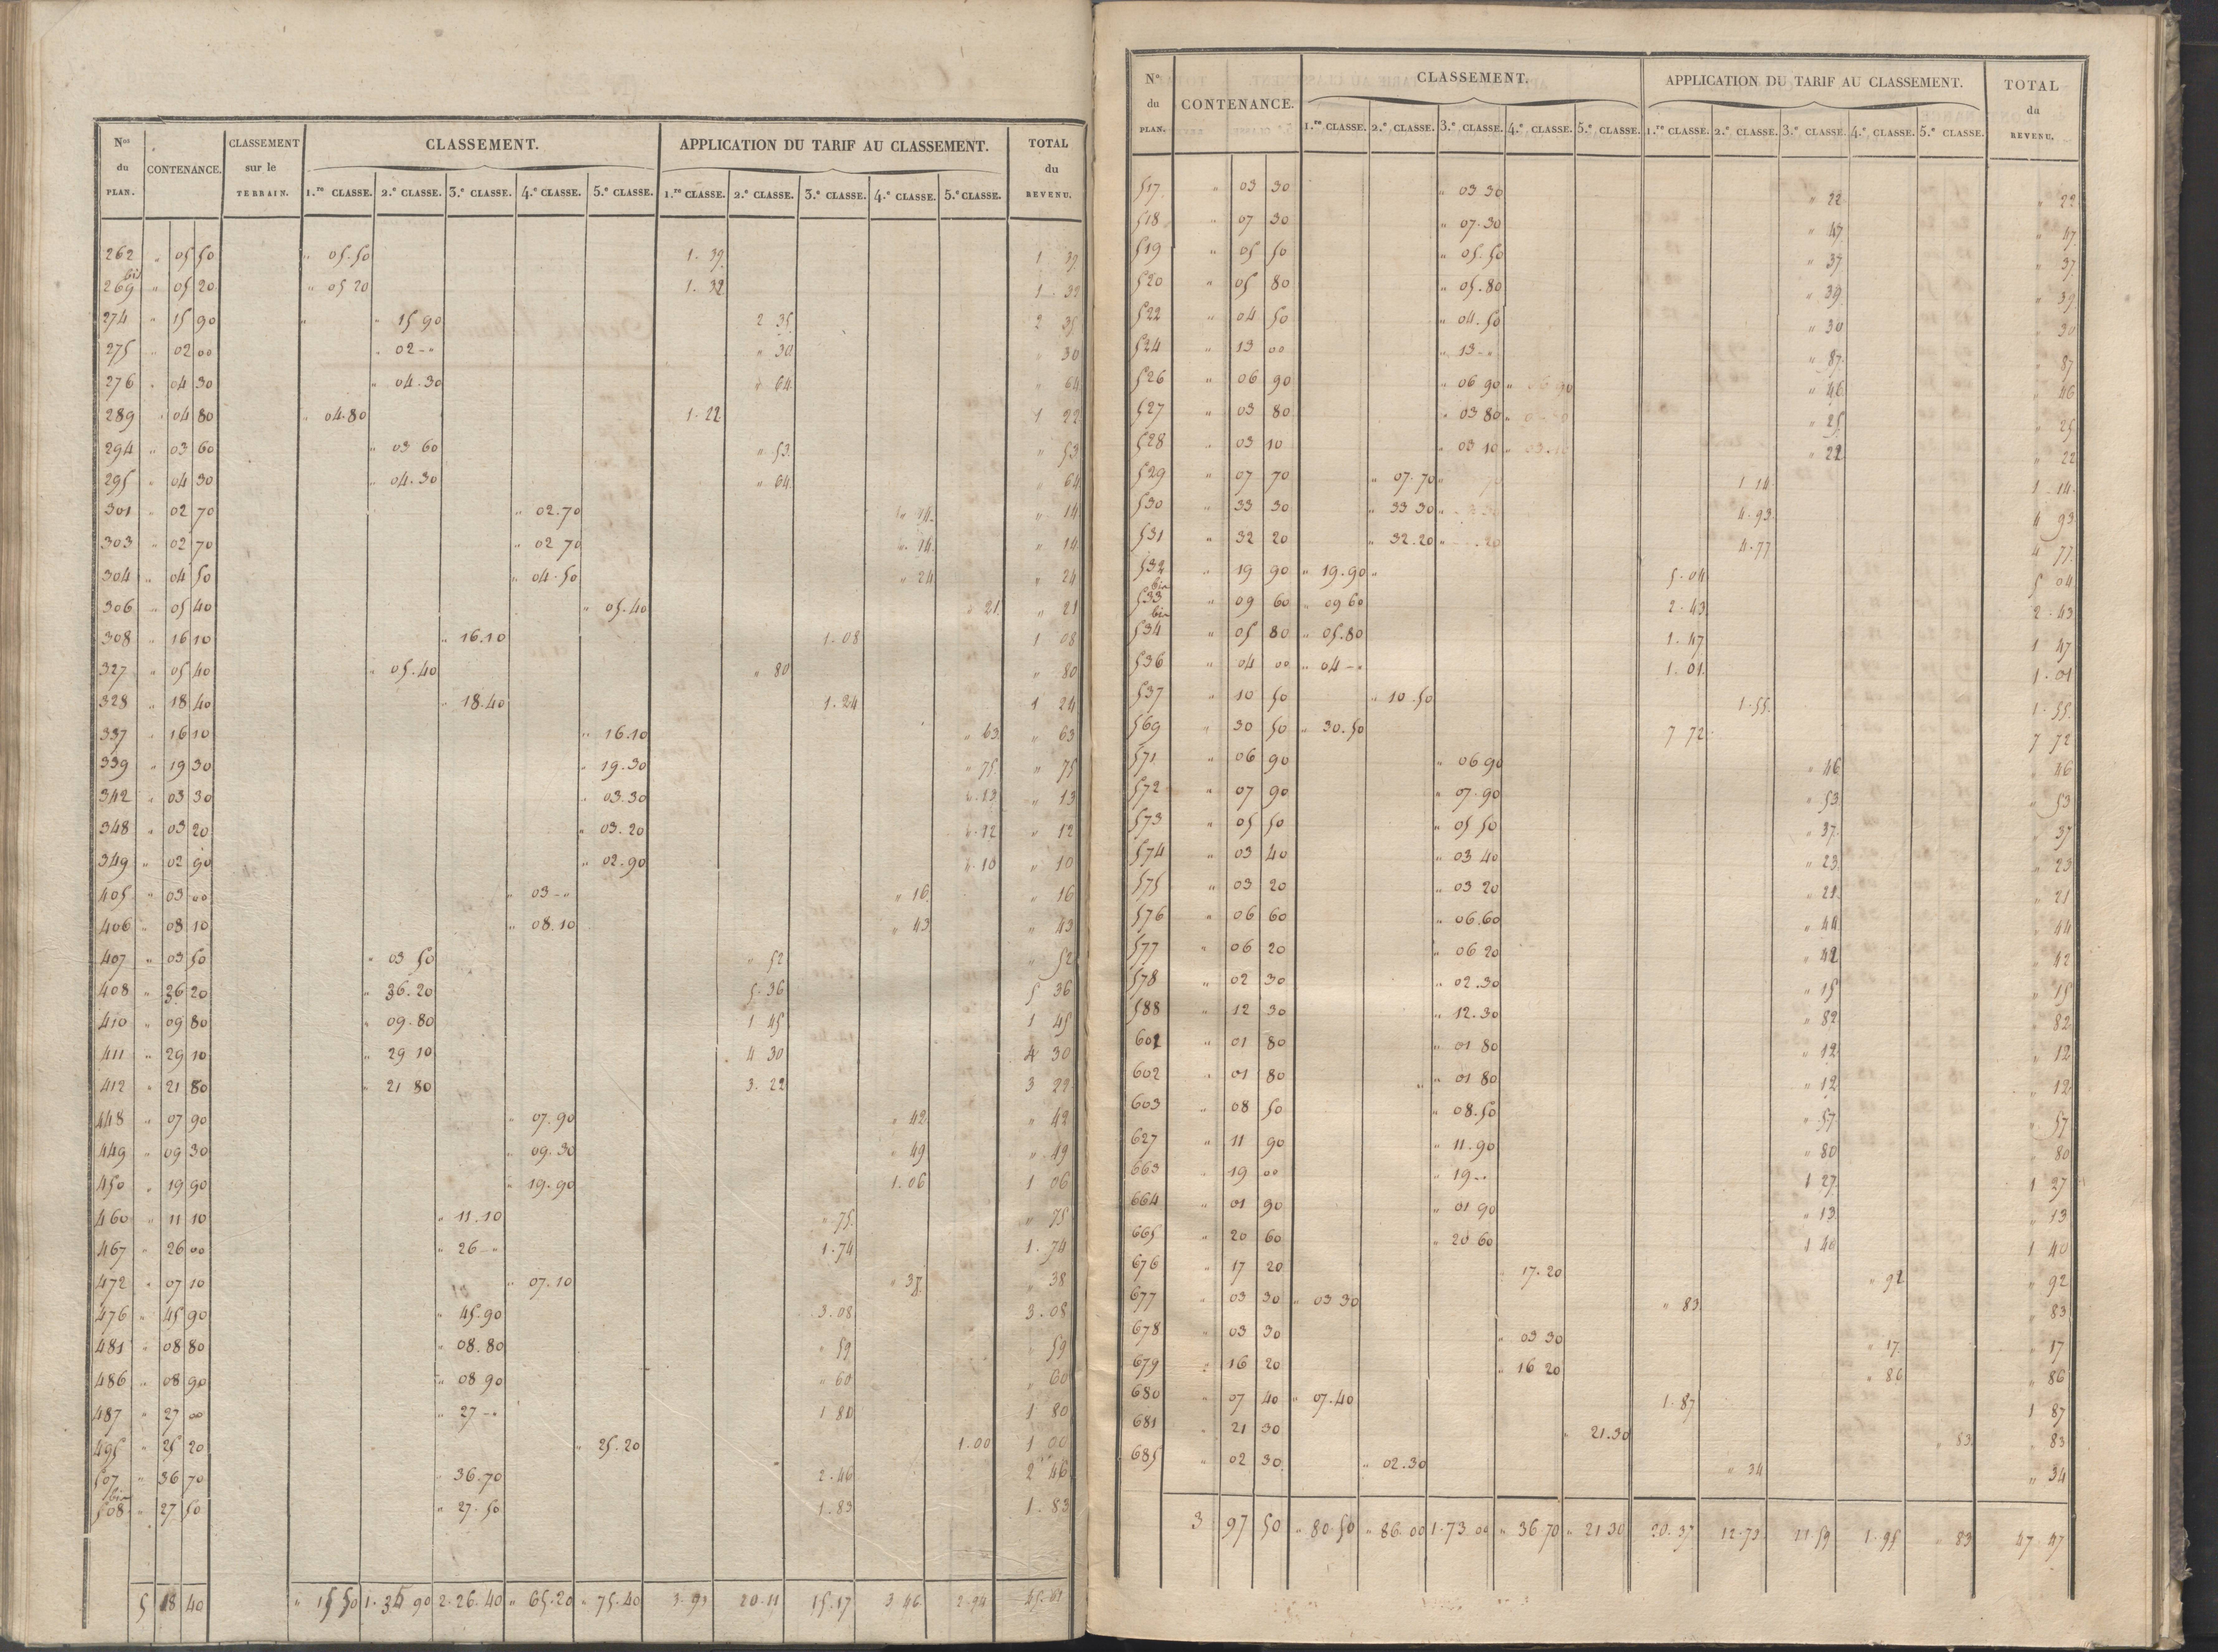 Nos du PLAN. CONTENANCE. CLASSEMENT sur le TERRAIN. CLASSEMENT. APPLICATION DU TARIF AU CLASSEMENT. TOTAL du REVENU.
1.re CLASSE. 2.e CLASSE. 3.e CLASSE. 4.e CLASSE. 5.e CLASSE. 1.re CLASSE. 2.e CLASSE. 3.e CLASSE. 4.e CLASSE. 5.e CLASSE.
262 " 05 50 " 05.50 1.39 1 39
269 bis " 05 20 " 05 20 1.32 1 32
274 " 15 90 " " 15 90 2 35 2 35
275 " 02 00 " 02-" " 30 " 30
276 " 04 30 " 04.30 " 64 " 64
289 " 04 80 " 04.80 1.22 1 22
294 " 03 60 " 03 60 " 53 " 53
295 " 04 30 " 04.30 " 64 " 64
301 " 02 70 " 02.70 " 14 " 14
303 " 02 70 " 02 70 " 14 " 14
304 " 04 50 " 04.50 " 24 " 24
306 " 05 40 " 05.40 " 21 " 21
308 " 16 10 " 16.10 1.08 1 08
327 " 05 40 " 05.40 " 80 " 80
328 " 18 40 " 18.40 1.24 1 24
337 " 16 10 " 16.10 " 63 " 63
339 " 19 30 " 19.30 " 75 " 75
342 " 03 30 " 03.30 " 13 " 13
348 " 03 20 " 03.20 " 12 " 12
349 " 02 90 " 02.90 " 10 " 10
405 " 03 00 " 03-" " 16 " 16
406 " 08 10 " 08.10 " 43 " 43
407 " 03 50 " 03 50 " 52 " 52
408 " 36 20 " 36.20 5.36 5 36
410 " 09 80 " 09.80 1 45 1 45
411 " 29 10 " 29 10 4 30 4 30
412 " 21 80 " 21 80 3.22 3 22
448 " 07 90 " 07.90 " 42 " 42
449 " 09 30 " 09.30 " 49 " 49
450 " 19 90 " 19.90 1.06 1 06
460 " 11 10 " 11.10 " 75 " 75
467 " 26 00 " 26-" 1.74 1.74
472 " 07 10 " 07.10 " 37 " 38
476 " 45 90 " 45.90 3.08 3.08
481 " 08 80 " 08.80 " 59 " 59
486 " 08 90 " 08 90 " 60 " 60
487 " 27 00 " 27-" 1 80 1 80
495 " 25 20 " 25.20 1.00 1 00
507 " 36 70 " 36.70 2.46 2 46
508 bis " 27 50 " 27.50 1.83 1.83
5 18 40 " 15 50 1.35 90 2.26.40 " 65.20 " 75.40 3.93 20.11 15.17 3 46 2.94 45.61
No du PLAN. CONTENANCE. CLASSEMENT. APPLICATION DU TARIF AU CLASSEMENT. TOTAL du REVENU.
1.re CLASSE. 2.e CLASSE. 3.e CLASSE. 4.e CLASSE. 5.e CLASSE. 1.re CLASSE. 2.e CLASSE. 3.e CLASSE. 4.e CLASSE. 5.e CLASSE.
517 " 03 30 " 03 30 " 22 " 22
518 " 07 30 " 07.30 " 47 " 47
519 " 05 50 " 05.50 " 37 " 37
520 " 05 80 " 05.80 " 39 " 39
522 " 04 50 " 04.50 " 30 " 30
524 " 13 00 " 13-" " 87 " 87
526 " 06 90 " 06 90 " 06 90 " 46 " 46
527 " 03 80 " 03 80 " 25 " 25
528 " 03 10 " 03 10 " 03.10 " 22 " 22
529 " 07 70 " 07.70 1 14 1 14
530 " 33 30 " 33 30 4.93 4 93
531 " 32 20 " 32.20 4.77 4 77
532 " 19 90 " 19.90 5.04 5 04
533 bis " 09 60 " 09 60 2.43 2.43
534 bis " 05 80 " 05.80 1.47 1 47
536 " 04 00 " 04-" 1.01 1.01
537 " 10 50 " 10.50 1.55 1.55
569 " 30 50 " 30.50 7 72 7 72
571 " 06 90 " 06 90 " 46 " 46
572 " 07 90 " 07.90 " 53 " 53
573 " 05 50 " 05 50 " 37 " 37
574 " 03 40 " 03 40 " 23 " 23
575 " 03 20 " 03 20 " 21 " 21
576 " 06 60 " 06.60 " 44 " 44
577 " 06 20 " 06 20 " 42 " 42
578 " 02 30 " 02.30 " 15 " 15
588 " 12 30 " 12.30 " 82 " 82
601 " 01 80 " 01 80 " 12 " 12
602 " 01 80 " 01 80 " 12 " 12
603 " 08 50 " 08.50 " 57 " 57
627 " 11 90 " 11.90 " 80 " 80
663 " 19 00 " 19-" 1 27 1 27
664 " 01 90 " 01 90 " 13 " 13
665 " 20 60 " 20 60 1 40 1 40
676 " 17 20 " 17.20 " 92 " 92
677 " 03 30 " 03 30 " 83 " 83
678 " 03 30 " 03 30 " 17 " 17
679 " 16 20 " 16 20 " 86 " 86
680 " 07 40 " 07.40 1.87 1 87
681 " 21 30 " 21.30 " 83 " 83
685 " 02 30 " 02.30 " 34 " 34
3 97 50 " 80.50 " 86.00 1.73 00 " 36 70 " 21 30 20.37 12.73 11.59 1.95 " 83 47 47